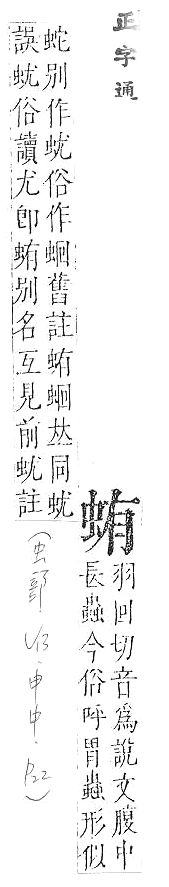 正字通
蛕
羽回切音爲說文腹中
長蟲今俗呼胃蟲形似
蛇别作蚘俗作蛔舊註蛕蛔𠀤同蚘
誤蚘俗讀尤卽蛕别名互見前蚘註
(虫部 申中.p22)